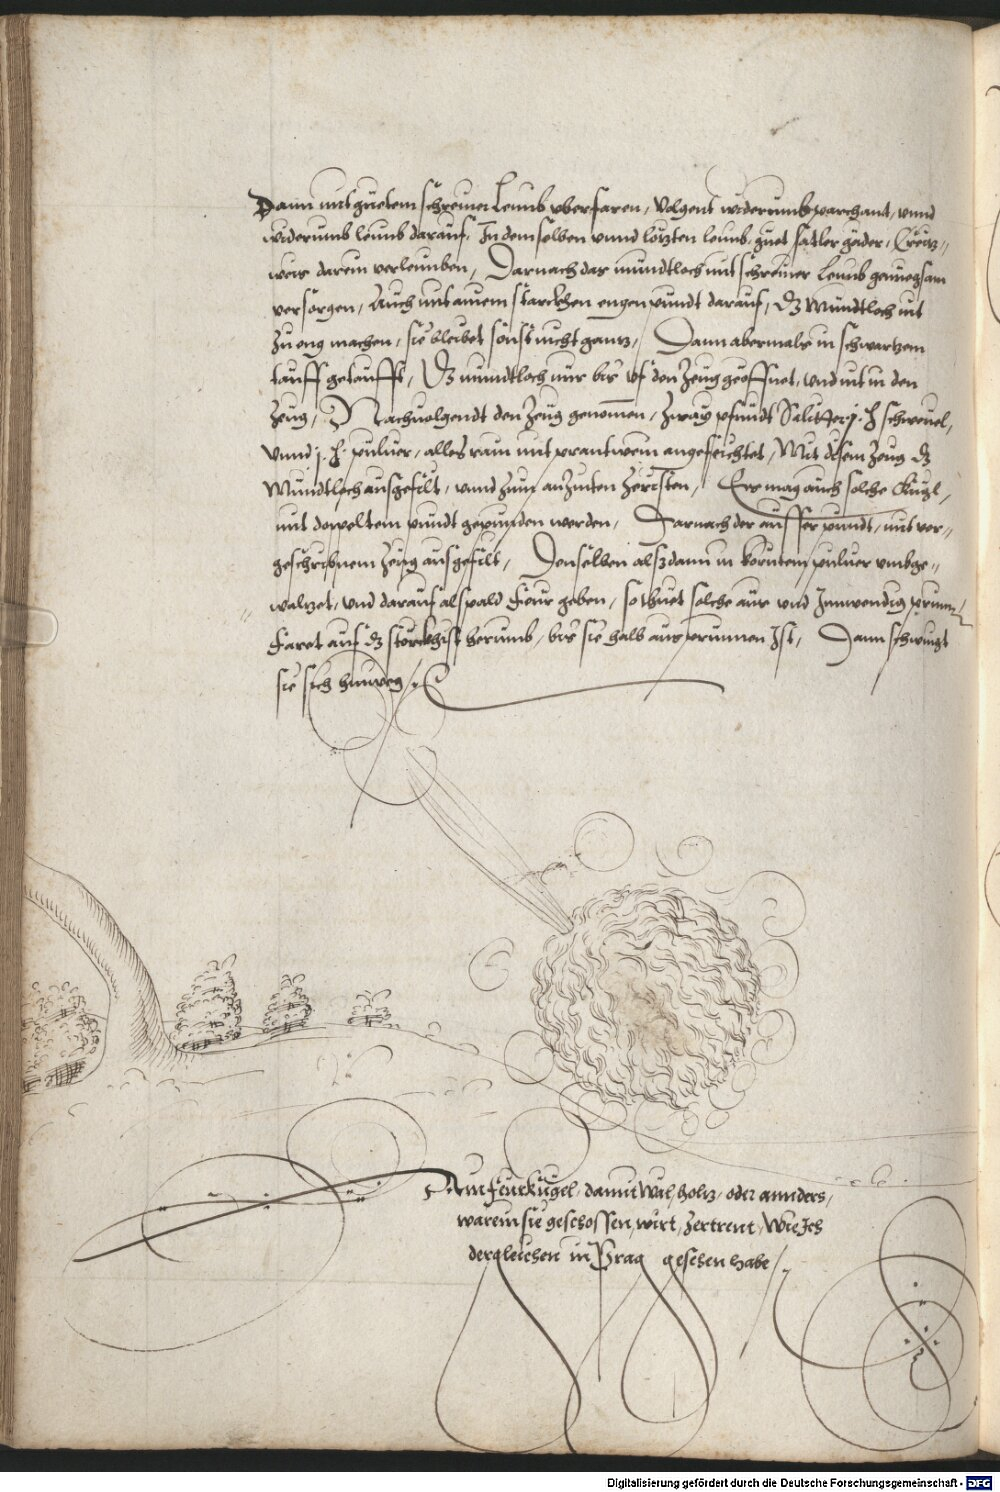 Dann mit guetem schreiner Leimb vberfaren, volgent widerumb parchant, vnnd
widerumb leimb darauf, In demselben vnnd lötzten leimb, guet satler geäder, Creitz,,
weis darein verleimben, Darnach das mundtloch mit schreiner Leimb genuegsam
versorgen, Auch mit ainem starckhen engen pundt darauf, dz Mundtloch nit
zu eng machen, sie bleibet sonst nicht gantz, Dann abermals in schwartzem
tauff getaufft, Dz mundtloch nur bis vf den Zeug geöffnet, vnd nit in den
Zeug, Nachuolgendt den Zeug genomen, Zway pfundt Saliter j. lb schwevel,
vnnd j. lb. puluer, alles rain mit prantwein angefeichtet, Mit disem Zeug dz
Mundtloch ausgefilt, vnnd zum anzinten zerichten, Ess mag auch solche Kugl,
mit dopeltem pundt gepunden werden, Darnach der ausser pundt, mit vor,,
geschribnem Zeug ausgefilt, Denselben alsdann in kornntem puluer vmbge,,
waltzet, vnd darauf alspald feur geben, so thuet solche aus vnd Innwendig prinnen,
faret auf dz störckhist herumb, bis sie halb ausprunnen Ist, Dann schwingt
sie sich hinweg,
Ain feurkugel, damit Wäl, holtz, oder annders,
warein sie geschossen, wirt, zertrent, Wie Ich
dergleichen in Prag gesehen habe,
Digitalisierung gefördert durch die Deutsche Forschungsgemeinschaft - DFG